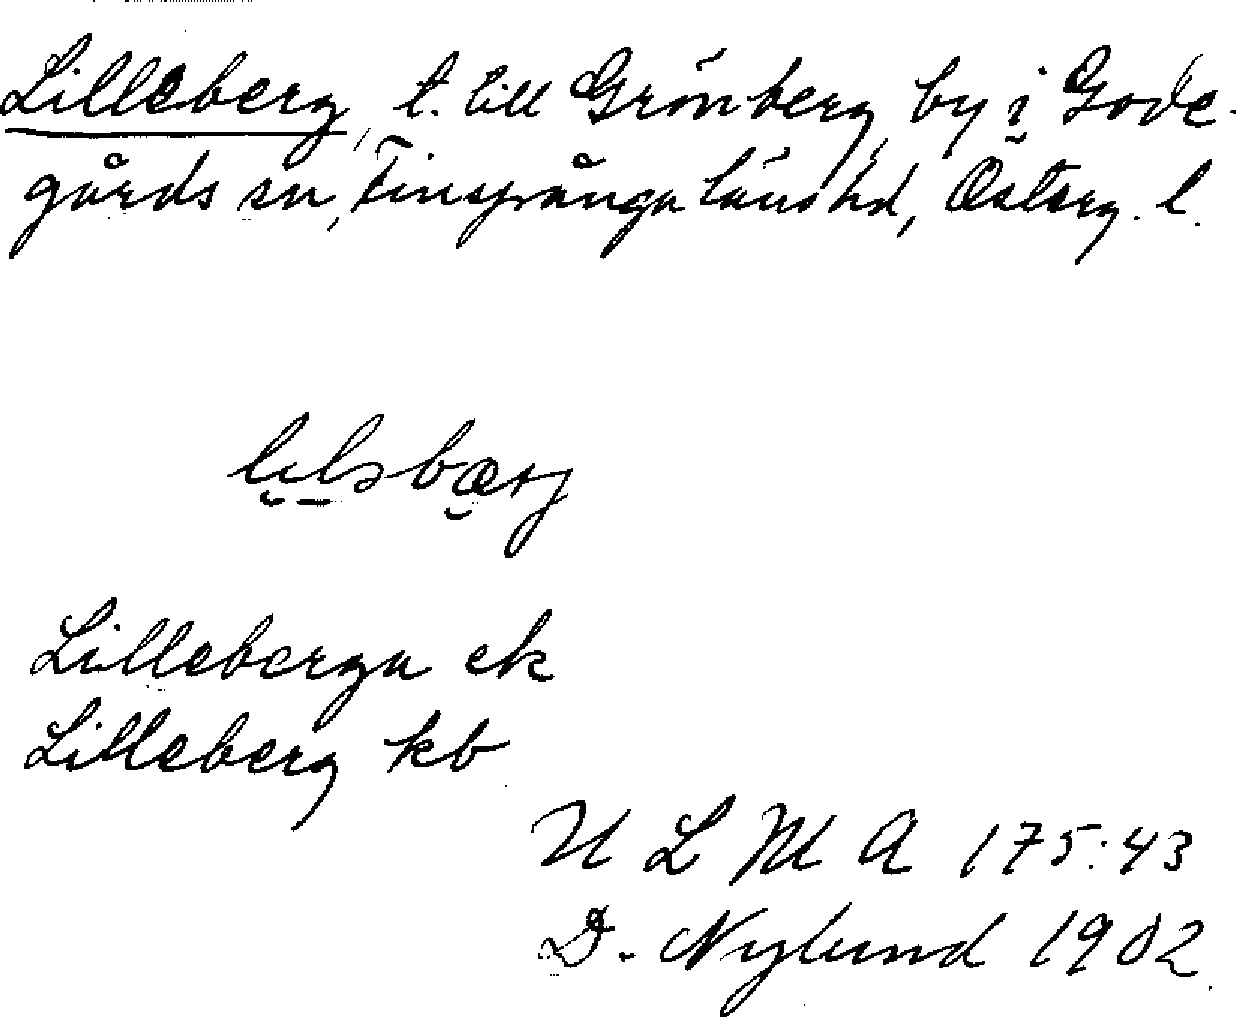 Lilleberg, t. till Grönberg, by i Gode-
gårds sn, Finspånga läns hd, Österg. l.
Lilleberga ek
Lilleberg kb
U L M A 175:43
D. Nylund 1902